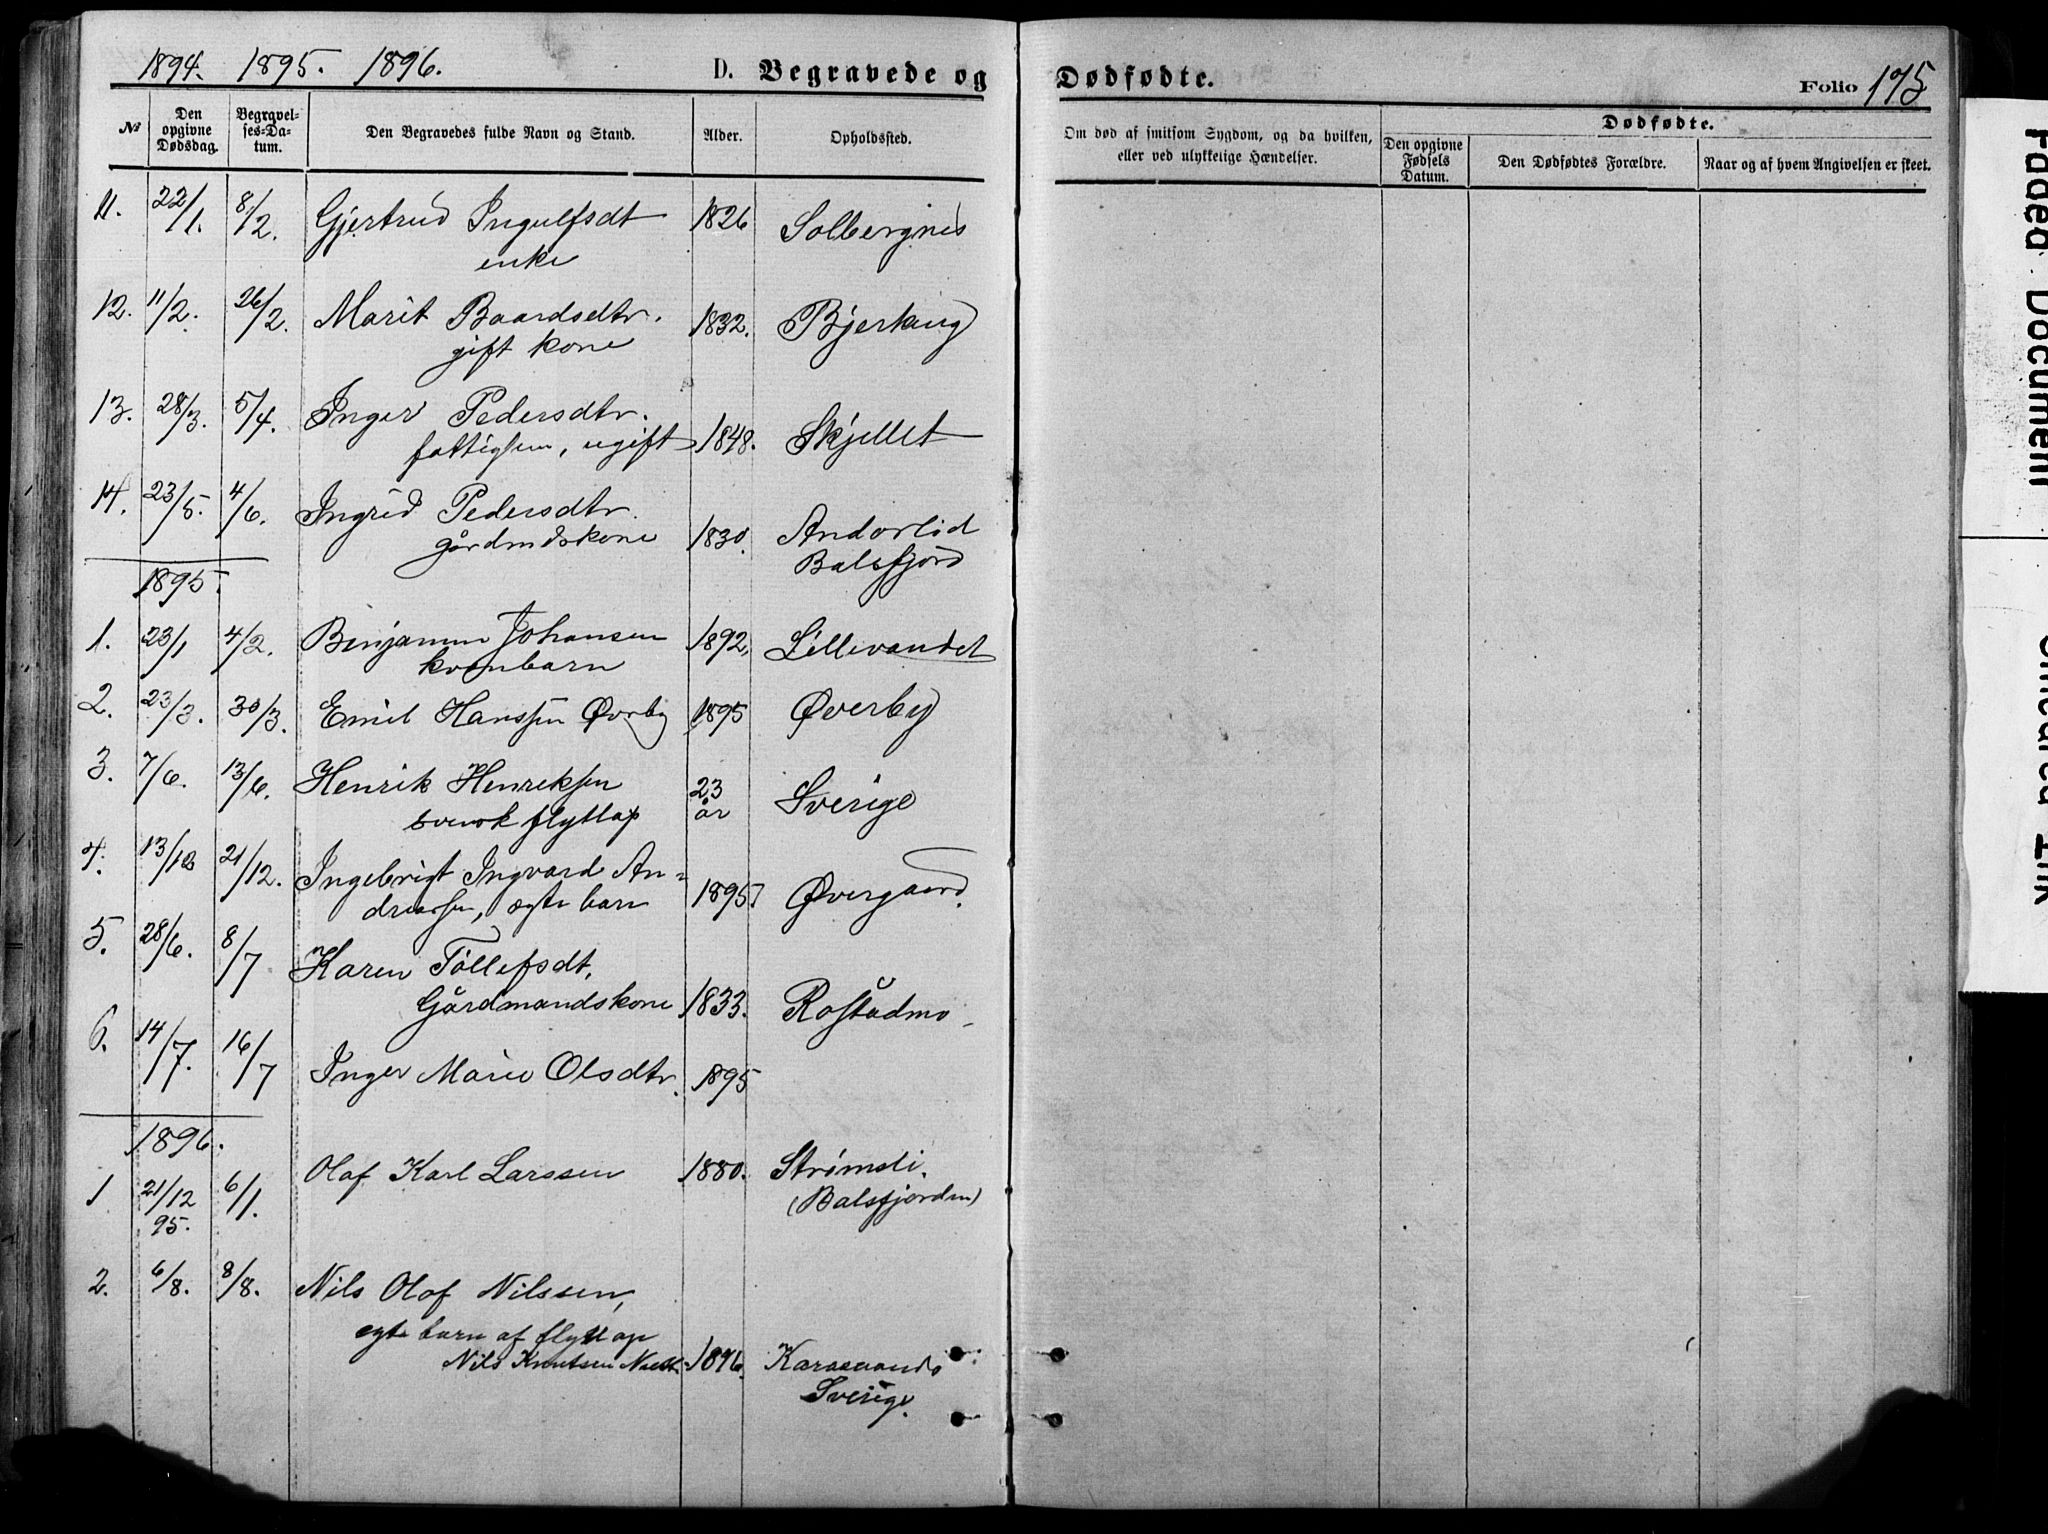 1894. 1895. 1896.
D. Begravede og Dødfødte.
Folio 175
№
Den opgivne Dødsdag.
Begravelses-Datum.
Den Begravedes fulde Navn og Stand.
Alder.
Opholdssted.
Om død af smitsom Sygdom, og da hvilken,
eller ved ulykkelige Hændelser.
Dødfødte.
Den opgivne Fødsels Datum.
Den Dødfødtes Forældre.
Naar og af hvem Angivelsen er skeet.
11. 22/1. 8/2. Gjertrud Ingulfsdt 1826 Solbergnes
enke
12. 11/2. 26/2. Marit Baardsdtr. 1832. Bjerking
gift kone
13. 28/3. 5/4. Inger Pedersdtr.
fattiglem, ugift 1848. Skjellet
14. 23/5. 4/6. Ingrid Pedersdtr.
gårdmdskone 1830. Andorlid
Balsfjord
1895.
1. 23/1 4/2. Benjamin Johansen 1892. Lillevandet
kvenbarn
2. 23/3. 30/3. Emil Hanssen Øvrby 1895 Øverby
3. 7/6. 13/6. Henrik Henriksen 23 år Sverige
svensk flytlap
4. 13/12 21/12. Ingebrigt Ingvard An=
dreassen, ægte barn 1895. Øvergaard.
5. 28/6. 8/7 Karen Tollefsdt.
Gårdmandskone 1833. Rostadmo
6. 14/7. 16/7 Inger Marie Olsdtr. 1895
1896.
1 21/12 95. 6/1. Olaf Karl Larssen 1880. Strømsli.
(Balsfjorden)
2. 6/8. 8/8. Nils Olof Nilssen,
egte barn af flytlap
Nils Knutsen 1896.
Sverige.
Faded Document
Smeared Ink